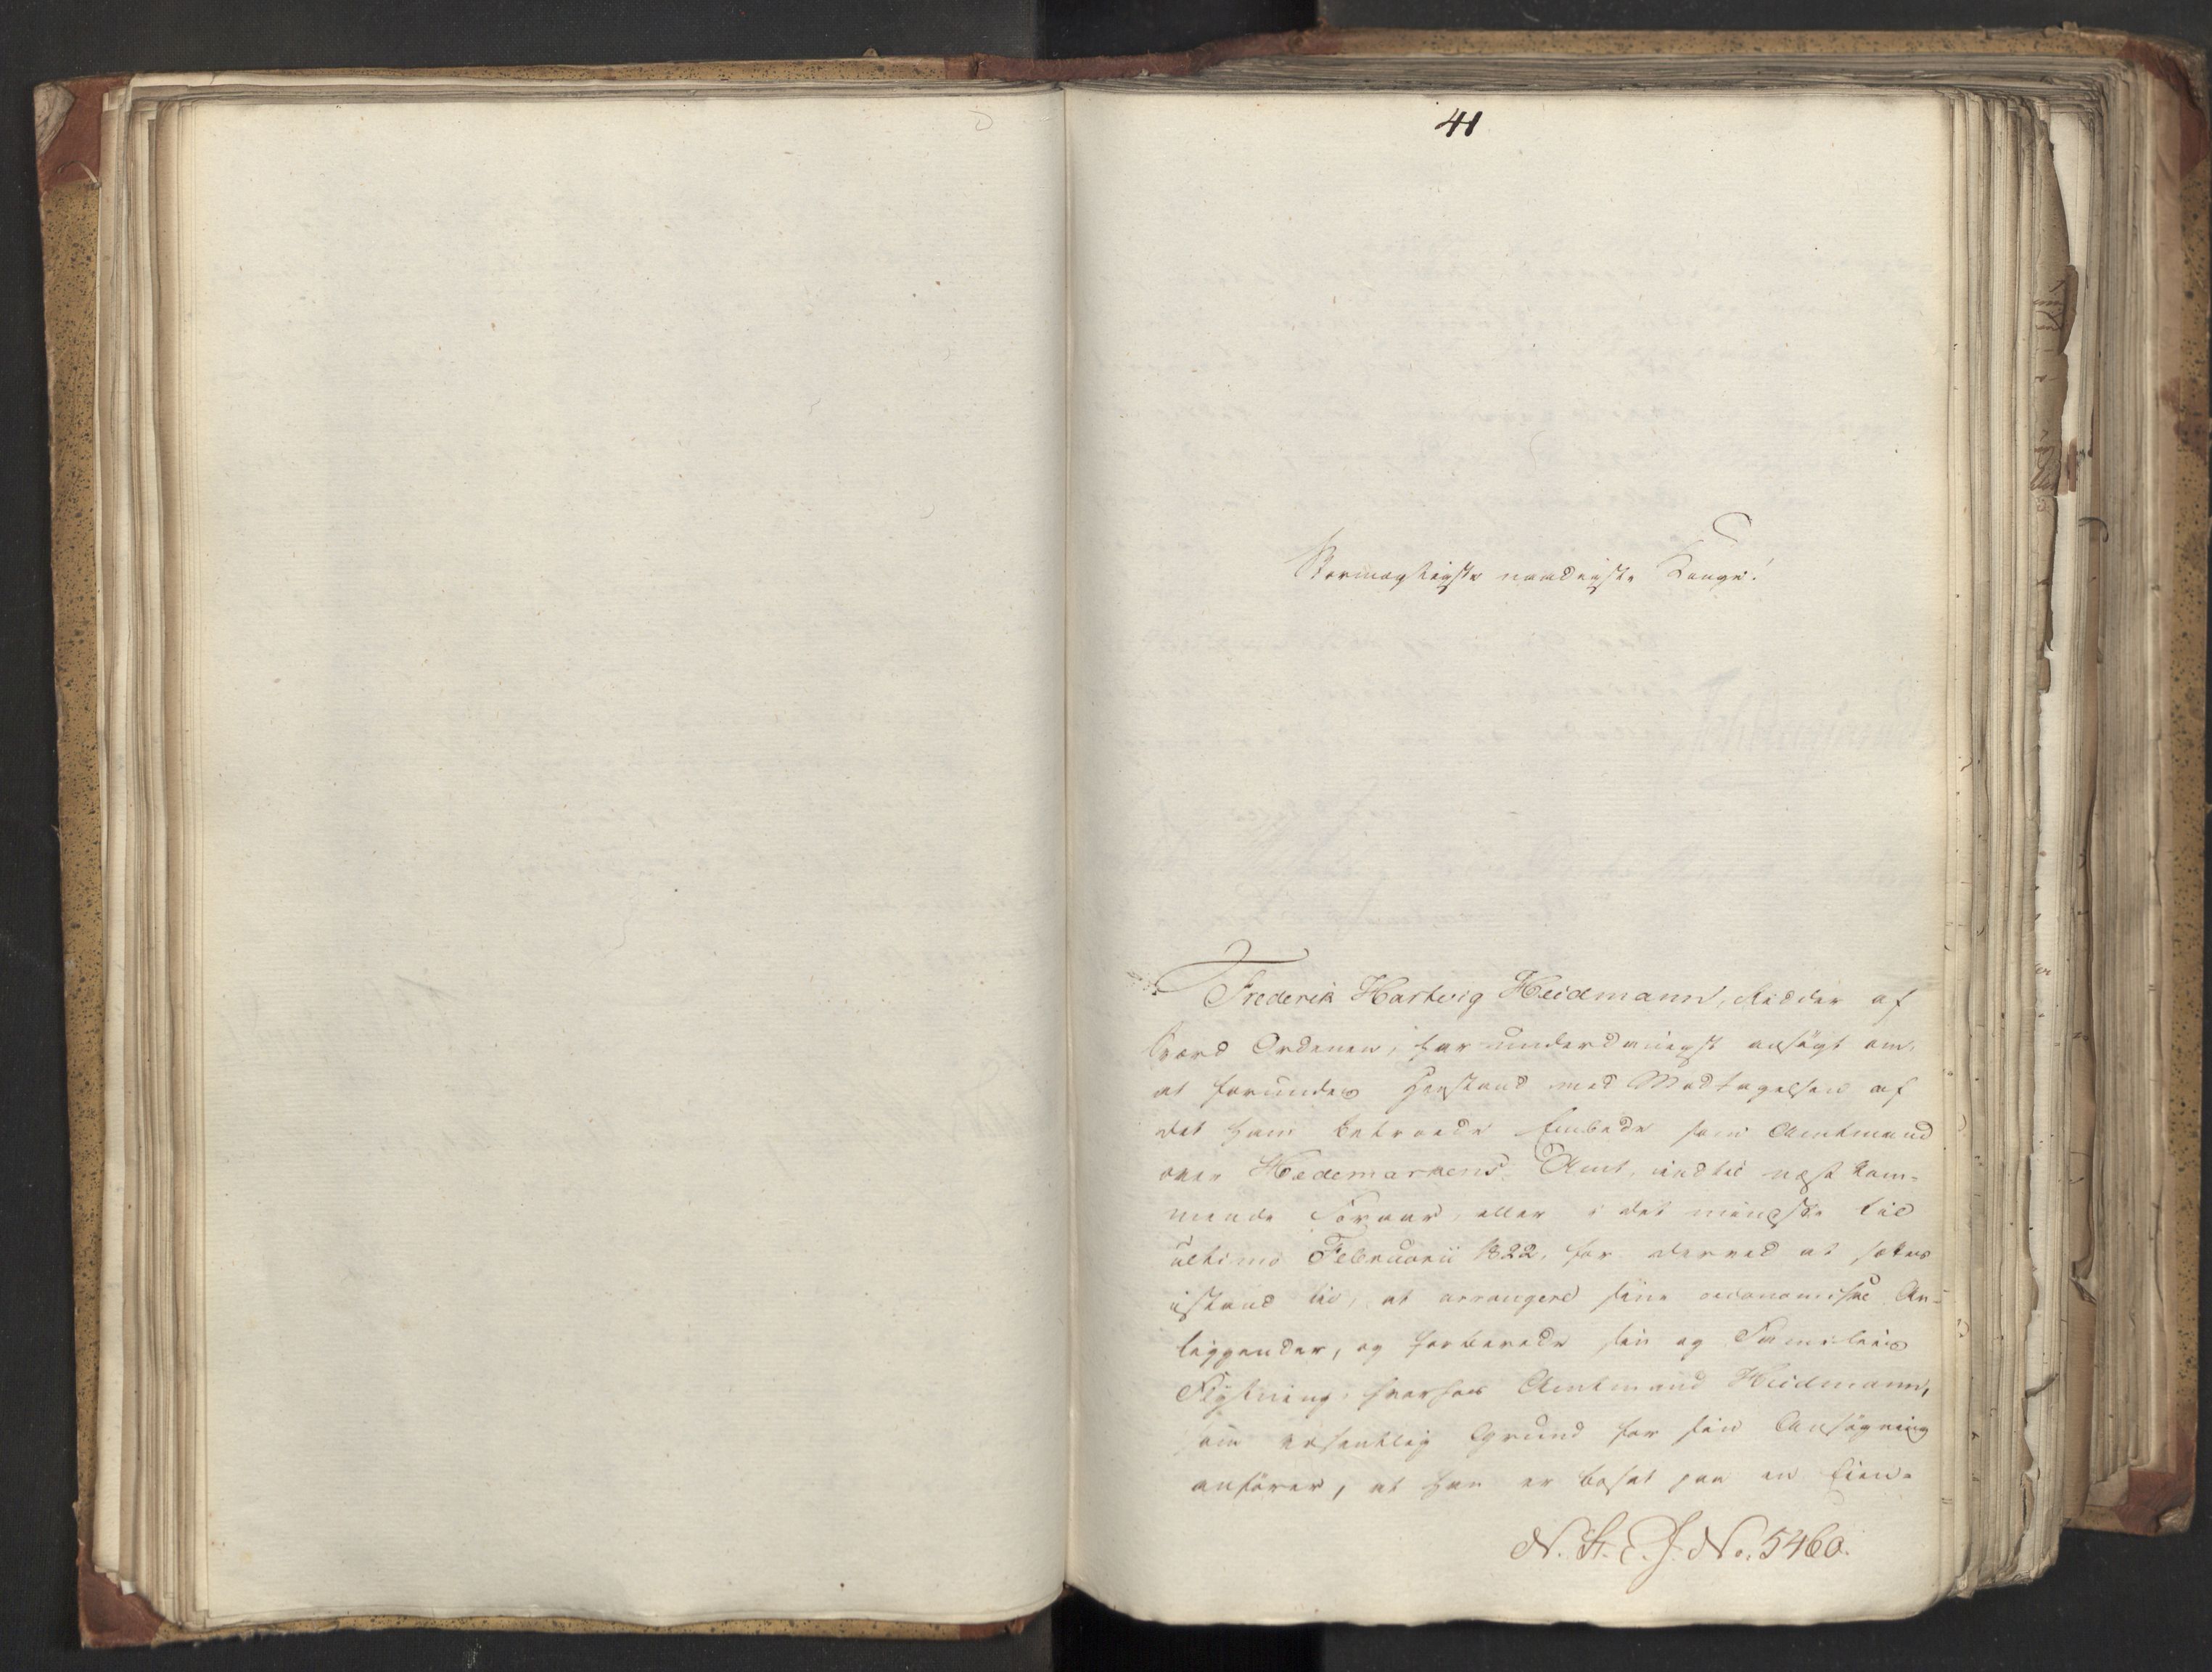 41
Stormægtigste naadigste Konge!
Frederik Hartvig Heidmann, Ridder af
Sværd Ordenen, har underdanigst ansøgt om,
at forundes Henstand med Modtagelsen af
det ham betroede Embede som Amtmand
over Hedemarkens Amt, indtil næst kom-
mende Foraar, eller i det mindste til
ultimo Februarii 1822, for derved at sættes
istand til, at arrangere sine oeconomiske An-
liggender, og forberede sin og Familiens
Flytning, hvorhos Amtmand Heidmann,
som væsentlig Grund for sin Ansøgning
anfører, at han er bosat paa en Eien-
N. St. E. J. No. 5460.